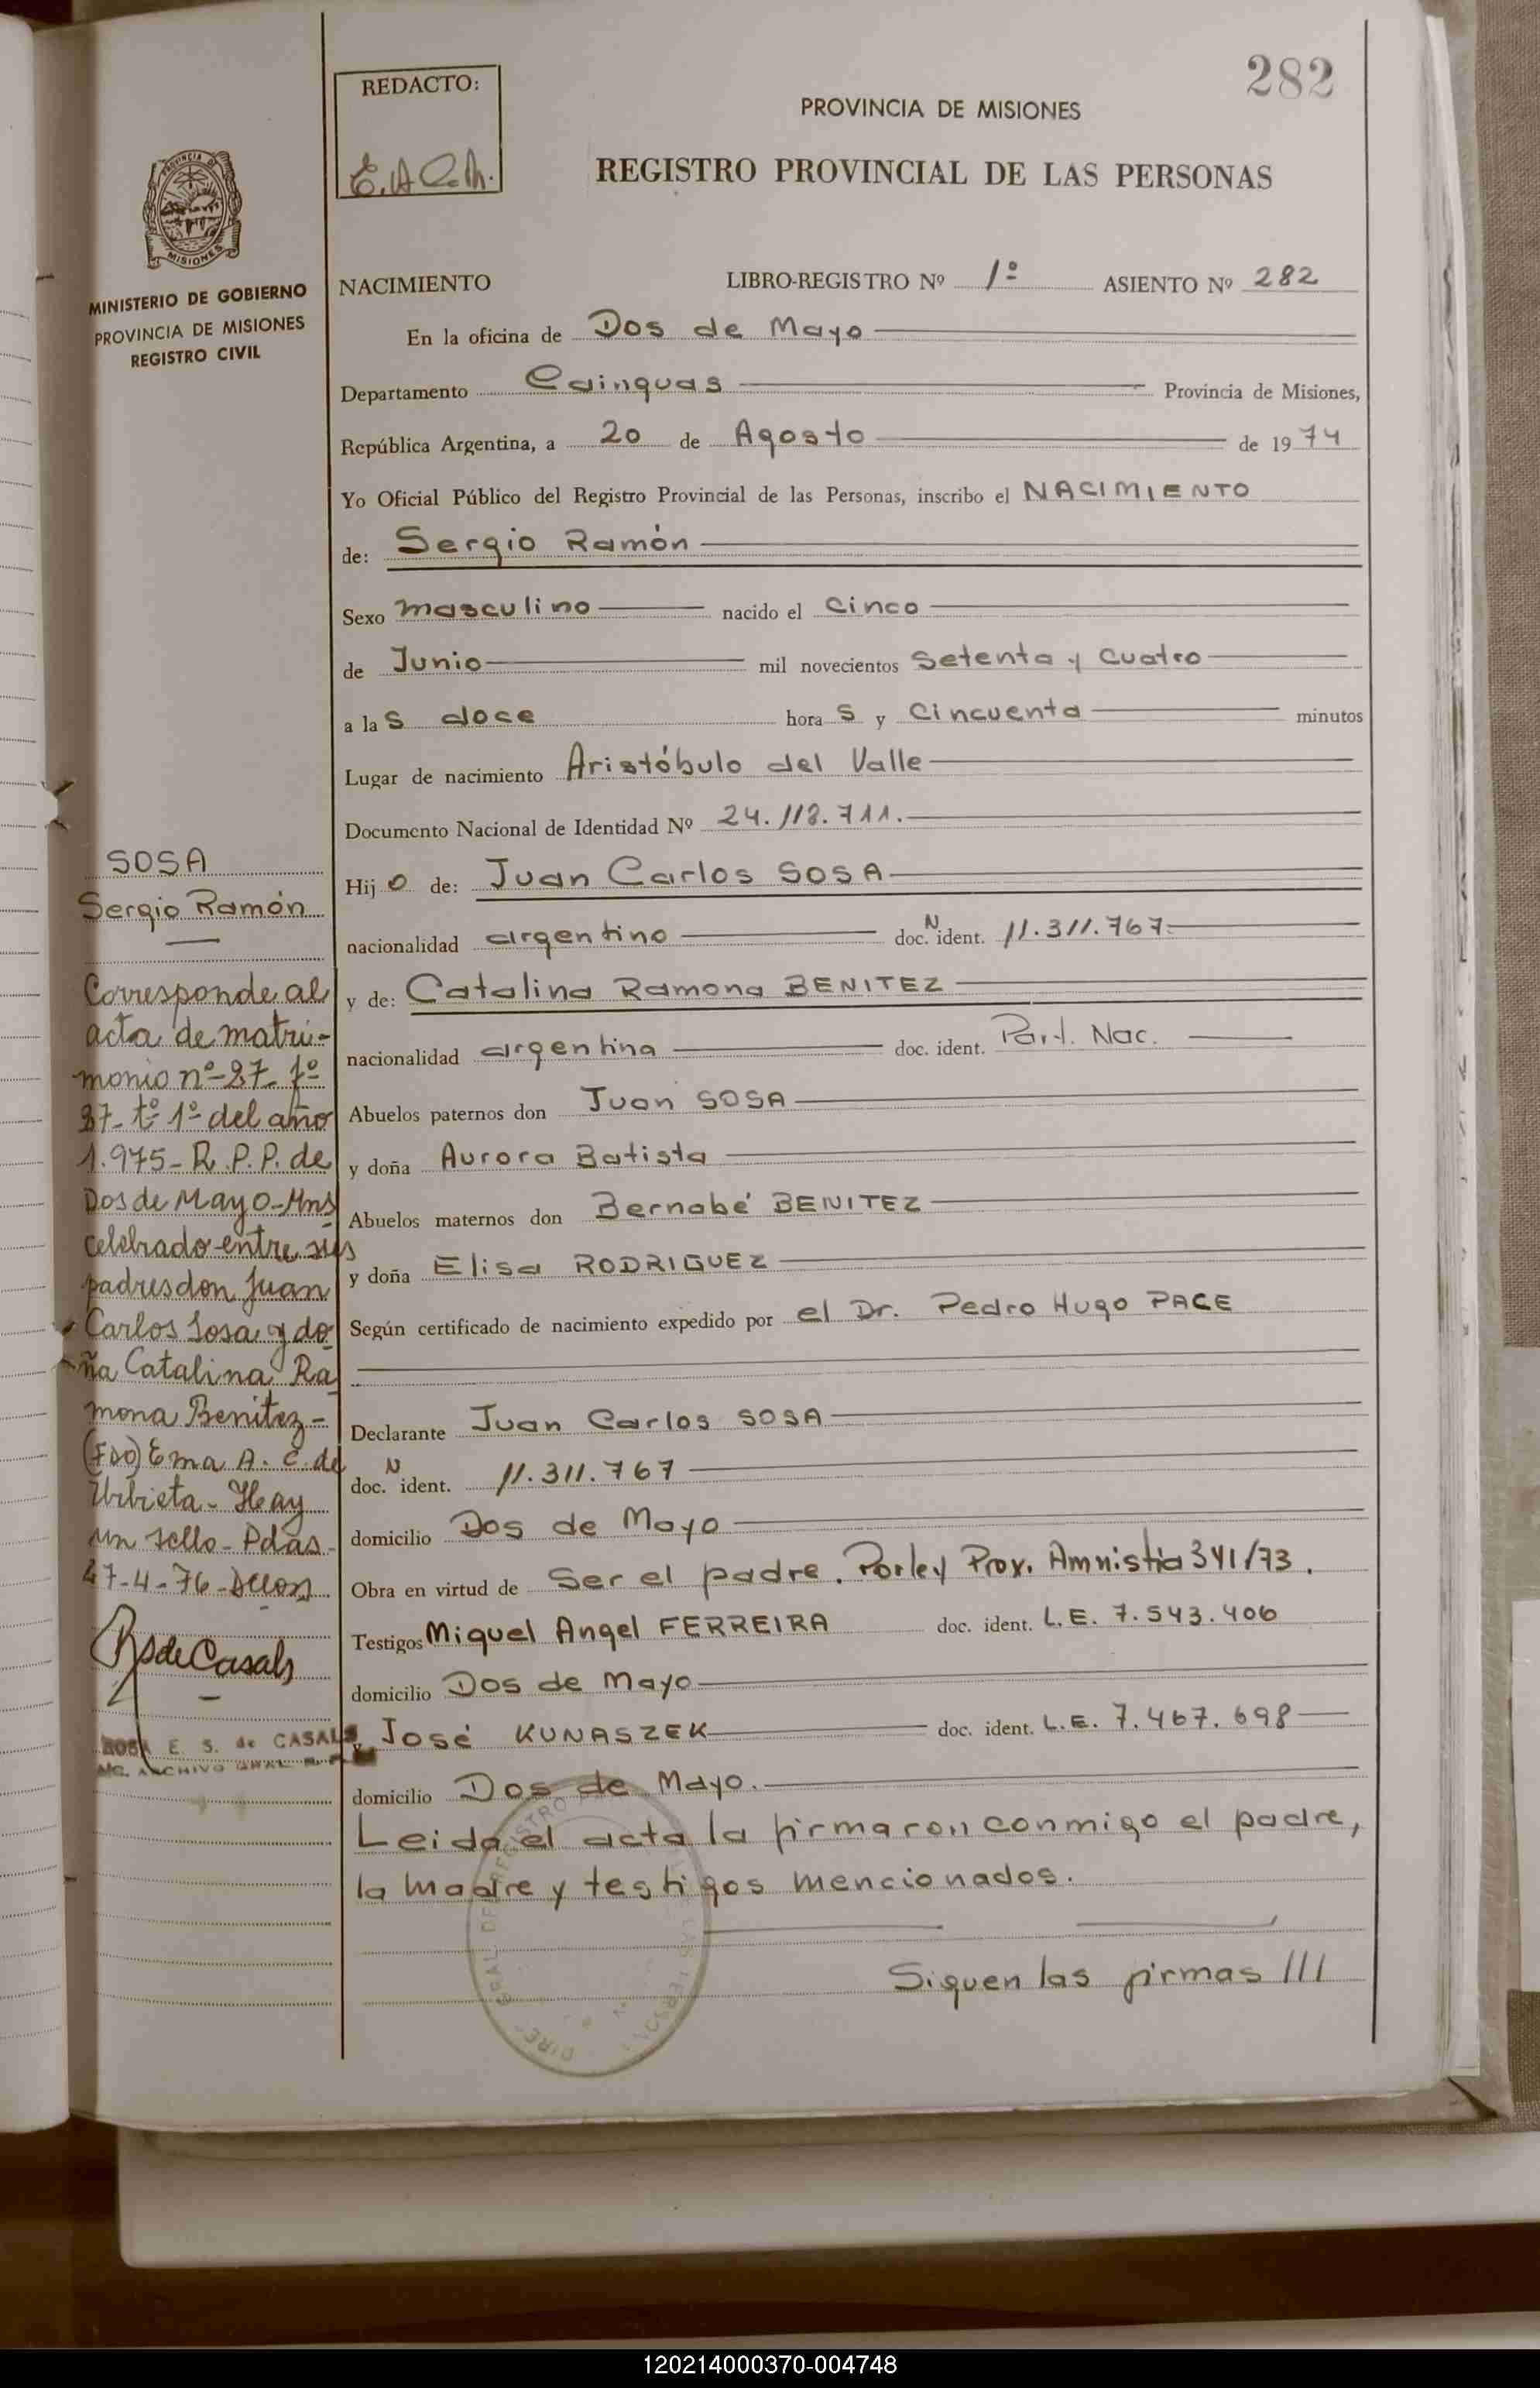 282
REDACTO:
E.A.C.
PROVINCIA DE MISIONES
REGISTRO PROVINCIAL DE LAS PERSONAS
PROVINCIA DE
MISIONES
MINISTERIO DE GOBIERNO
PROVINCIA DE MISIONES
REGISTRO CIVIL
NACIMIENTO LIBRO-REGISTRO Nº 1º ASIENTO Nº 282
En la oficina de Dos de Mayo
Departamento Cainguas Provincia de Misiones,
República Argentina, a 20 de Agosto de 1974
Yo Oficial Público del Registro Provincial de las Personas, inscribo el NACIMIENTO
de: Sergio Ramón
Sexo masculino nacido el cinco
de Junio mil novecientos setenta y cuatro
a las doce horas y cincuenta minutos
Lugar de nacimiento Aristóbulo del Valle
Documento Nacional de Identidad Nº 24.118.711.
Hijo de: Juan Carlos SOSA
nacionalidad argentino doc. N ident. 11.311.767
y de: Catalina Ramona BENITEZ
nacionalidad argentina doc. ident. Part. Nac.
Abuelos paternos don Juan SOSA
y doña Aurora Batista
Abuelos maternos don Bernabé BENITEZ
y doña Elisa RODRIGUEZ
Según certificado de nacimiento expedido por el Dr. Pedro Hugo PACE
Declarante Juan Carlos SOSA
doc. N ident. 11.311.767
domicilio Dos de Mayo
Obra en virtud de Ser el padre. Porley Prov. Amnistia 341/73.
Testigos Miguel Angel FERREIRA doc. ident. L.E. 7.543.406
domicilio Dos de Mayo
y José KUNASZEK doc. ident. L.E. 7.467.698
domicilio Dos de Mayo.
Leida el acta la firmaron conmigo el padre,
la madre y testigos mencionados.
Siguen las firmas ///
SOSA
Sergio Ramón
Corresponde al
acta de matri-
monio nº 27 fº
37 tº 1º del año
1.975 - R.P.P. de
Dos de Mayo - Mns
celebrado entre sus
padres don Juan
Carlos Sosa y do
ña Catalina Ra
mona Benitez -
(FDO) Ema A. C. de
Urbieta - Hay
un sello - Pdas
27-4-76
RSdeCasals
ROSA E. S. de CASALS
ARCHIVO GRAL.
120214000370-004748